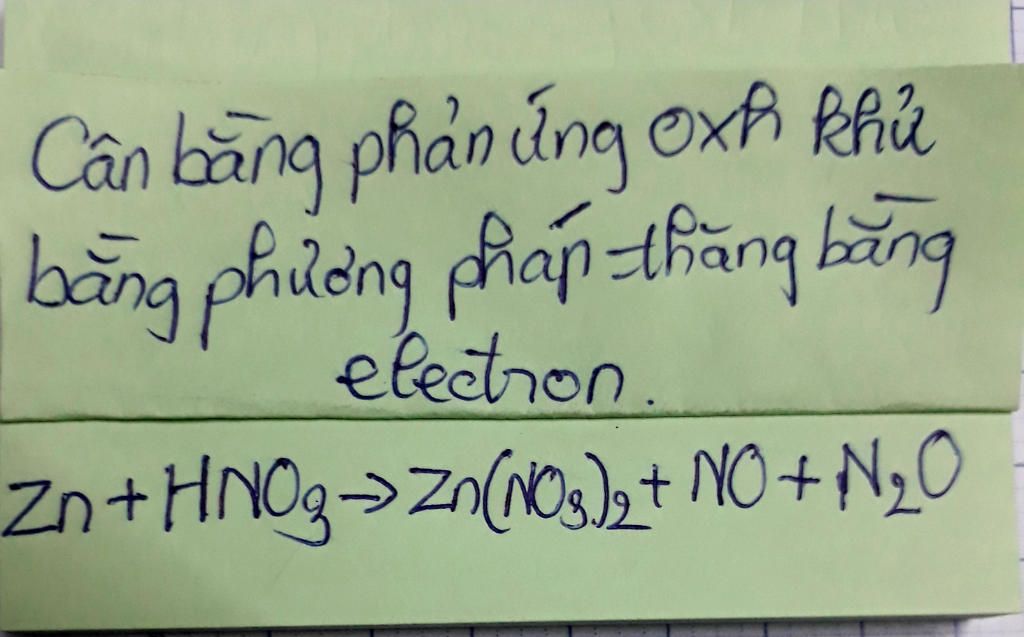 Cân bằng phản ứng oxh khử
bằng phương pháp thăng bằng
electron.
Zn + HNO₃ → Zn(NO₃)₂ + NO + N₂O